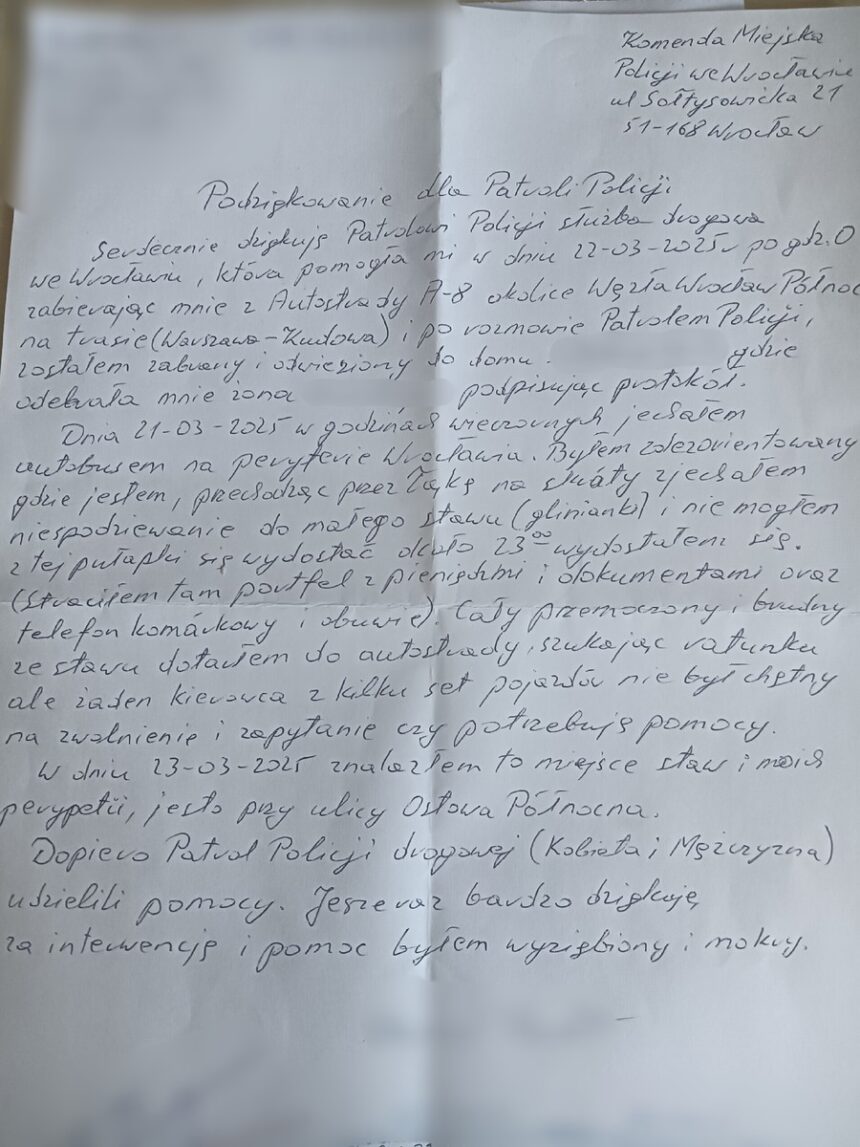 Komenda Miejska
Policji we Wrocławiu
ul Sołtysowicka 21
51-168 Wrocław
Podziękowanie dla Patroli Policji
Serdecznie dziękuję Patrolowi Policji służba drogowa
we Wrocławiu, która pomogła mi w dniu 22-03-2025r po godz. 0
zabierając mnie z Autostrady A-8 okolice Węzła Wrocław Północ
na trasie (Warszawa-Kudowa) i po rozmowie Patrolem Policji,
zostałem zabrany i odwieziony do domu. gdzie
odebrała mnie żona podpisując protokół.
Dnia 21-03-2025 w godzinach wieczornych jechałem
autobusem na peryferie Wrocławia. Byłem zdezorientowany
gdzie jestem, przechodząc przez Łąkę na skróty zjechałem
niespodziewanie do małego stawu (glinianki) i nie mogłem
z tej pułapki się wydostać około 23°° wydostałem się.
(Straciłem tam portfel z pieniędzmi i dokumentami oraz
telefon komórkowy i obuwie). Cały przemoczony i brudny
ze stawu dotarłem do autostrady, szukając ratunku
ale żaden kierowca z kilku set pojazdów nie był chętny
na zwolnienie i zapytanie czy potrzebuję pomocy.
W dniu 23-03-2025 znalazłem to miejsce staw i moich
perypetii, jest to przy ulicy Osława Północna.
Dopiero Patrol Policji drogowej (Kobieta i Mężczyzna)
udzielili pomocy. Jeszcze raz bardzo dziękuję,
za interwencję i pomoc byłem wyziębiony i mokry.